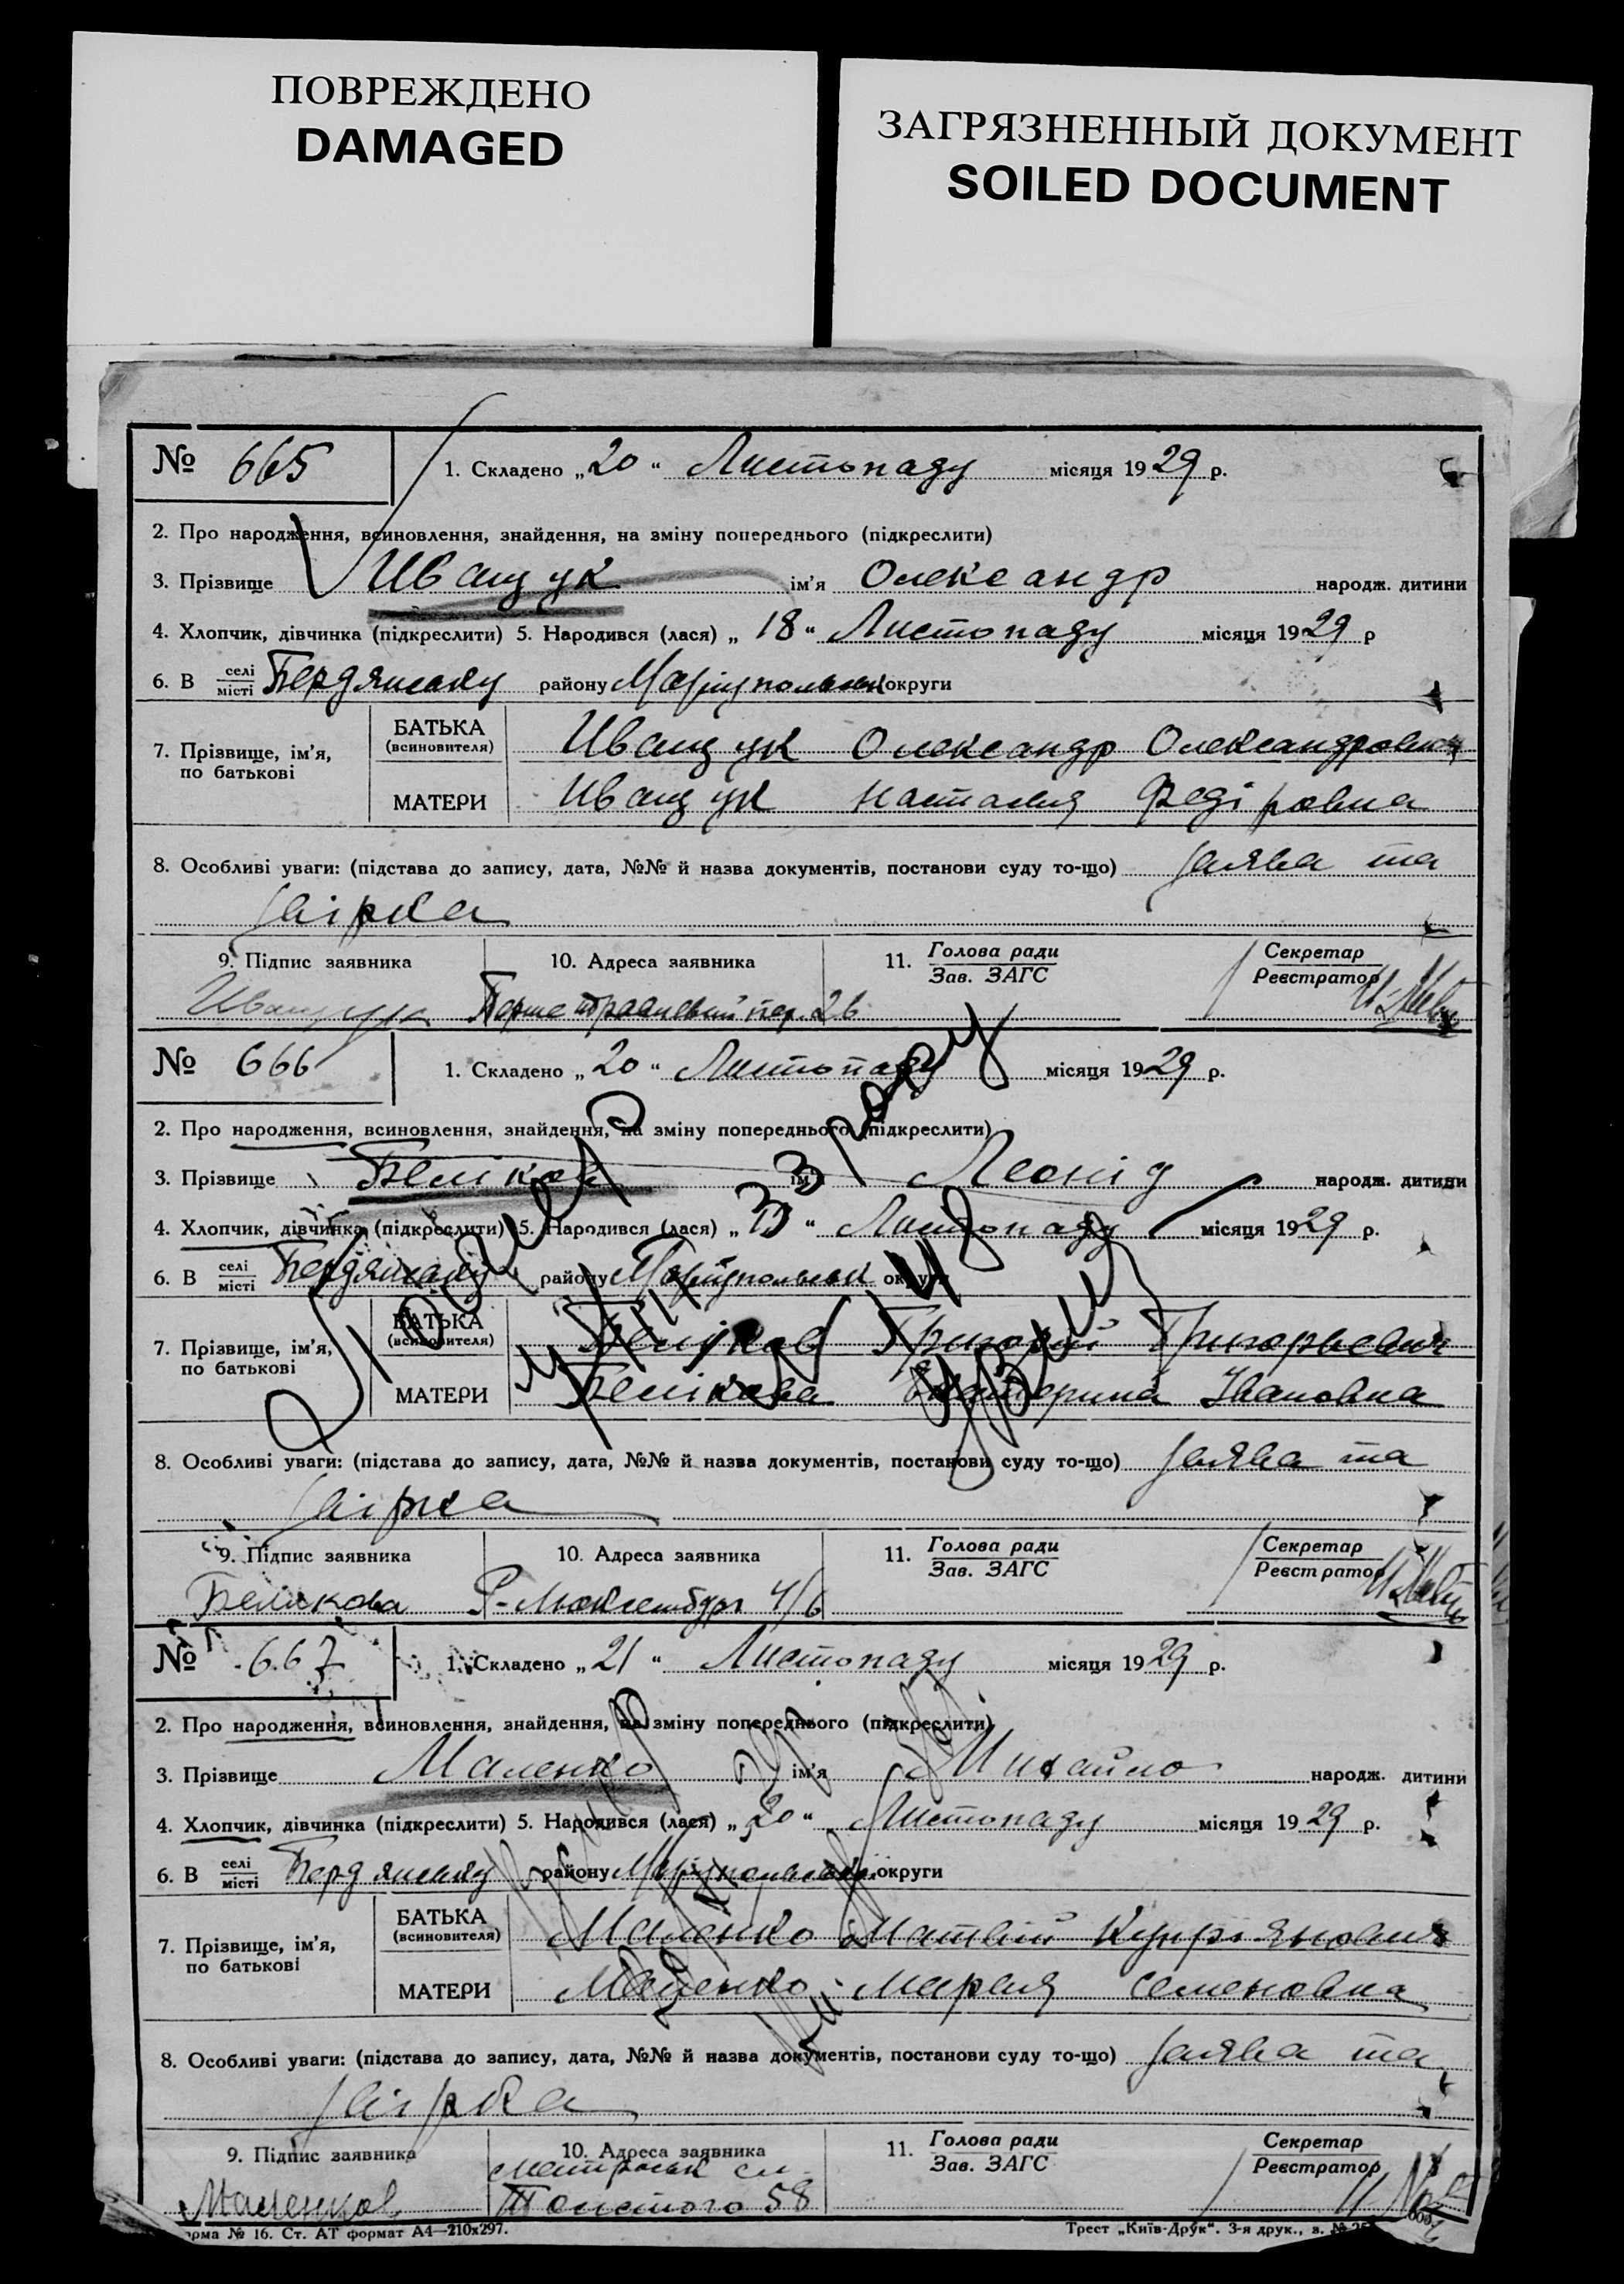 ПОВРЕЖДЕНО
DAMAGED
ЗАГРЯЗНЕННЫЙ ДОКУМЕНТ
SOILED DOCUMENT
№ 665
1. Складено „20“ Листопаду місяця 1929 р.
2. Про народження, всиновлення, знайдення, на зміну попереднього (підкреслити)
3. Прізвище Иващук ім'я Олександр народж. дитини
4. Хлопчик, дівчинка (підкреслити) 5. Народився (лася) „18“ Листопаду місяця 1929 р
6. В селі місті Бердянську району Маріупольськ округи
7. Прізвище, ім'я, по батькові
БАТЬКА (всиновителя) Иващук Олександр Олександрович
МАТЕРИ Иващук Настасия Федіровна
8. Особливі уваги: (підстава до запису, дата, №№ й назва документів, постанови суду то-що) Заява та
9. Підпис заявника
10. Адреса заявника
11. Голова ради Зав. ЗАГС
Секретар Реєстратор
Иващук
№ 666
1. Складено „20“ Листопаду місяця 1929 р.
2. Про народження, всиновлення, знайдення, на зміну попереднього (підкреслити)
3. Прізвище Беліков ім'я Леонід народж. дитини
4. Хлопчик, дівчинка (підкреслити) 5. Народився (лася) „ “ Листопаду місяця 1929 р.
6. В селі місті Бердянську району Маріупольськ округи
7. Прізвище, ім'я, по батькові
БАТЬКА (всиновителя) Беліков Григорий Григорьевич
МАТЕРИ Белікова Екатерина Івановна
8. Особливі уваги: (підстава до запису, дата, №№ й назва документів, постанови суду то-що) Заява та
9. Підпис заявника
10. Адреса заявника
11. Голова ради Зав. ЗАГС
Секретар Реєстратор
Белікова Р-Люксембург 4/6
№ 667
1. Складено „21“ Листопаду місяця 1929 р.
2. Про народження, всиновлення, знайдення, на зміну попереднього (підкреслити)
3. Прізвище Маленко ім'я Михайло народж. дитини
4. Хлопчик, дівчинка (підкреслити) 5. Народився (лася) „20“ Листопаду місяця 1929 р.
6. В селі місті Бердянську району Маріупольськ округи
7. Прізвище, ім'я, по батькові
БАТЬКА (всиновителя) Маленко Матвій Купріянович
МАТЕРИ Маленко Мария Семеновна
8. Особливі уваги: (підстава до запису, дата, №№ й назва документів, постанови суду то-що) Заява та
9. Підпис заявника
10. Адреса заявника
11. Голова ради Зав. ЗАГС
Секретар Реєстратор
Толстого 58
орма № 16. Ст. АТ формат А4—210х297.
Трест „Київ-Друк“. 3-я друк., з. №